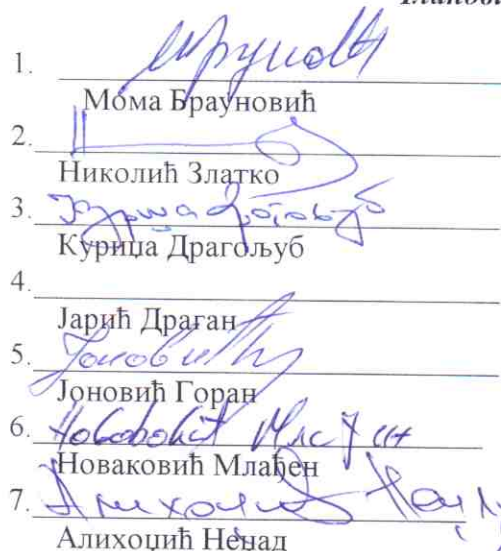 1.
Мома Брауновић
2.
Николић Златко
3.
Курица Драгољуб
4.
Јарић Драган
5. Јоновић
Јоновић Горан
6. Новаковић Млађен
Новаковић Млађен
7.
Алихоџић Ненад